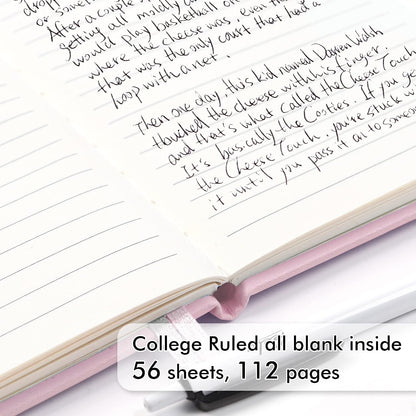 After a couple
getting all mildly a
would play basketball on
where the cheese was, even
that was the only court that had a
loop with a net.
Then one day, this kid named Darren Walsh
touched the cheese with his finger.
and that's what called the Cheese Touch
It's basically the Cooties. If you g
the Cheese Touch, you're stuck w
it until you pass it on to someon
College Ruled all blank inside
56 sheets, 112 pages